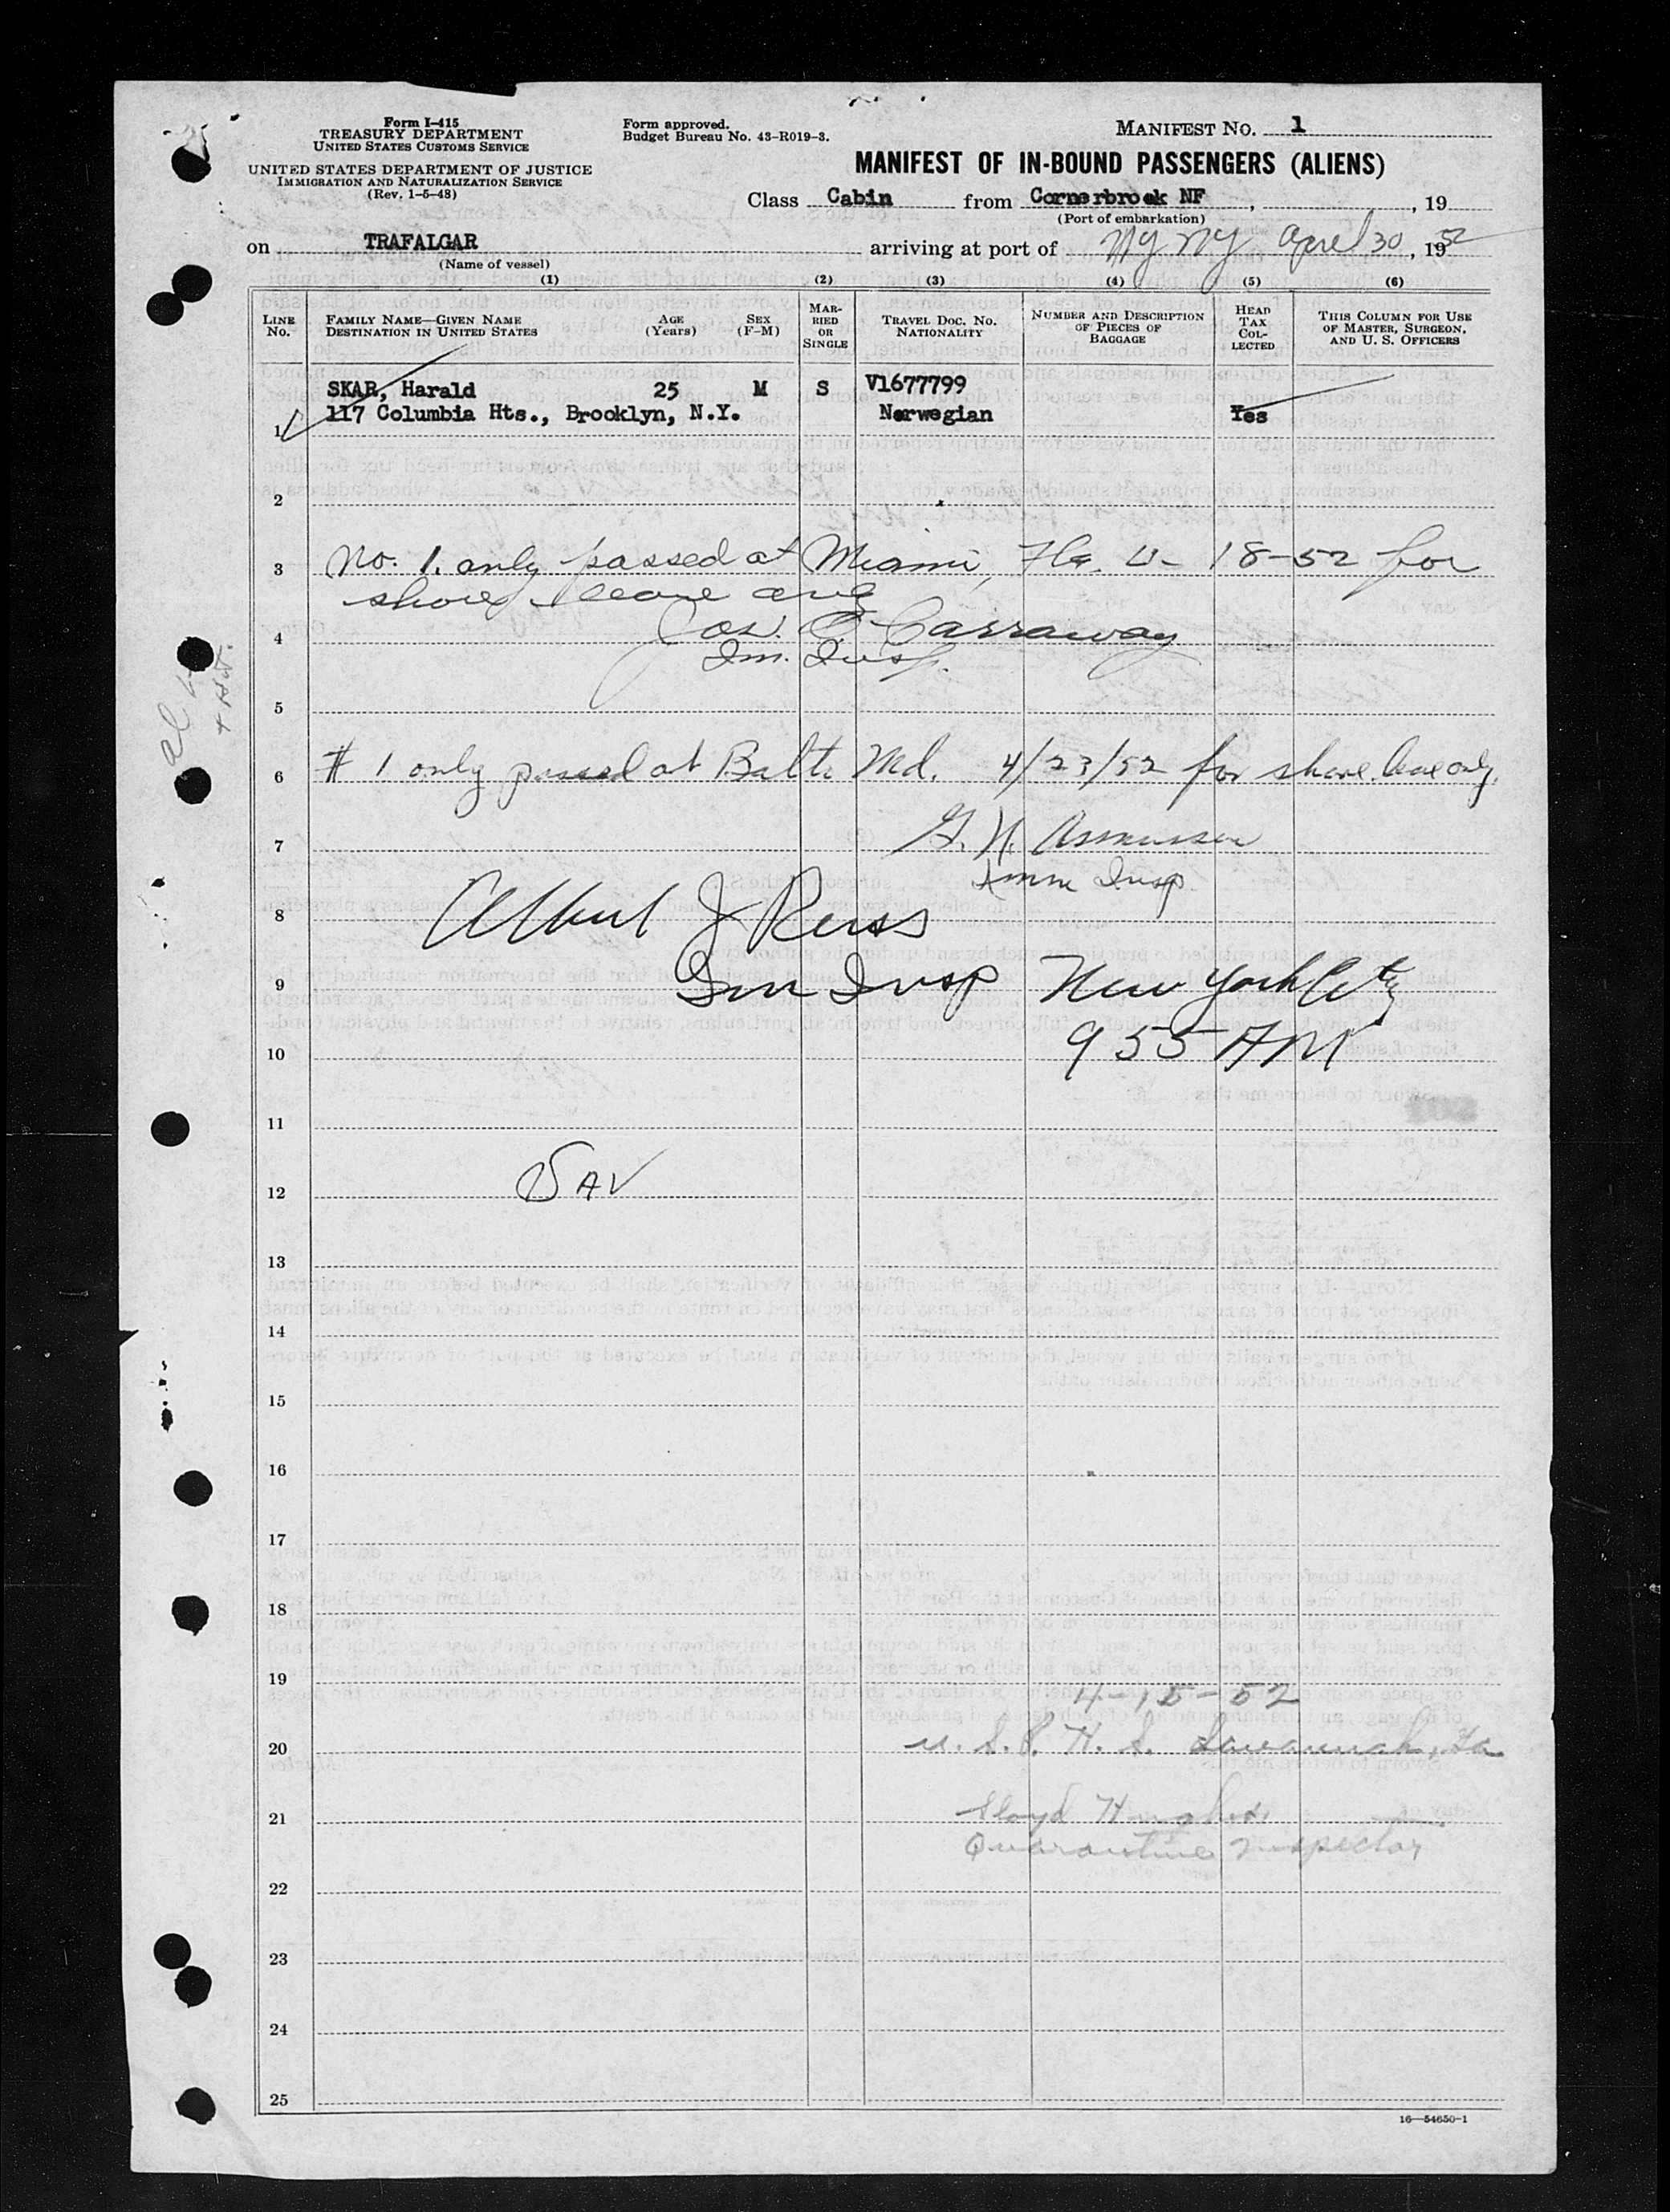 Form I-415
TREASURY DEPARTMENT
UNITED STATES CUSTOMS SERVICE
UNITED STATES DEPARTMENT OF JUSTICE
IMMIGRATION AND NATURALIZATION SERVICE
(Rev. 1-5-48)
Form approved.
Budget Bureau No. 43-R019-3.
MANIFEST NO. 1
MANIFEST OF IN-BOUND PASSENGERS (ALIENS)
Class Cabin from Cornerbrook NF, , 19
(Port of embarkation)
on TRAFALGAR arriving at port of NY NY April 30, 1952
(Name of vessel)
(1) (2) (3) (4) (5) (6)
LINE No.
FAMILY NAME—GIVEN NAME
DESTINATION IN UNITED STATES
AGE (Years)
SEX (F-M)
MARRIED OR SINGLE
TRAVEL DOC. NO.
NATIONALITY
NUMBER AND DESCRIPTION OF PIECES OF BAGGAGE
HEAD TAX COLLECTED
THIS COLUMN FOR USE OF MASTER, SURGEON, AND U. S. OFFICERS
SKAR, Harald 25 M S V1677799
1 117 Columbia Hts., Brooklyn, N.Y. Norwegian Yes
2
3 No. 1. only passed at Miami, Fla. 18-52 for
shore leave only
4 Jos. E. Carraway
Im. Insp.
5
6 # 1 only passed at Balto Md. 4/23/52 for shore leave only.
7 G. H. Asmussen
Imm Insp
8 Albert J Reiss
9 Im Insp New York City
10 9 55 AM
11
12 SAV
13
14
15
16
17
18
19
4-15-52
20 U. S. P. H. S. Savannah, Ga
21 Lloyd Hughes
Quarantine Inspector
22
23
24
25
16—54650-1